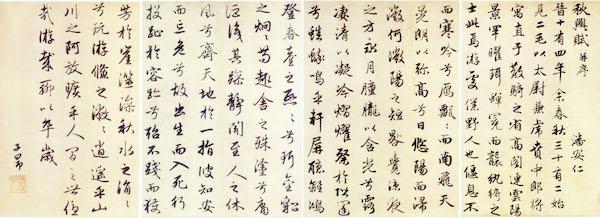 秋興賦并序
潘安仁
晉十有四年余春秋三十有二始
見二毛以太尉掾兼虎賁中郎將
寓直于散騎之省高閣連雲陽
景罕曜珥蟬冕而襲紈綺之
士此焉游處僕野人也偃息不
而寒吟兮雁飄飄而南飛天
晃朗以彌高兮日悠陽而浸
微何微陽之短晷覺涼夜
之方永月朣朧以含光兮露
凄清以凝冷熠燿粲於階闥
兮蟋蟀鳴乎軒屏聽離鴻
登春臺之熙熙兮珥金貂
之炯炯苟趣舍之殊塗兮庸
詎識其躁靜聞至人之休
風兮齊天地於一指彼知安
而忘危兮故出生而入死行
投趾於容跡兮殆不踐而獲
芳於崖澨澡秋水之涓涓
兮玩游儵之潎潎逍遙乎山
川之阿放曠乎人間之世優
哉游哉聊以卒歲
子昂